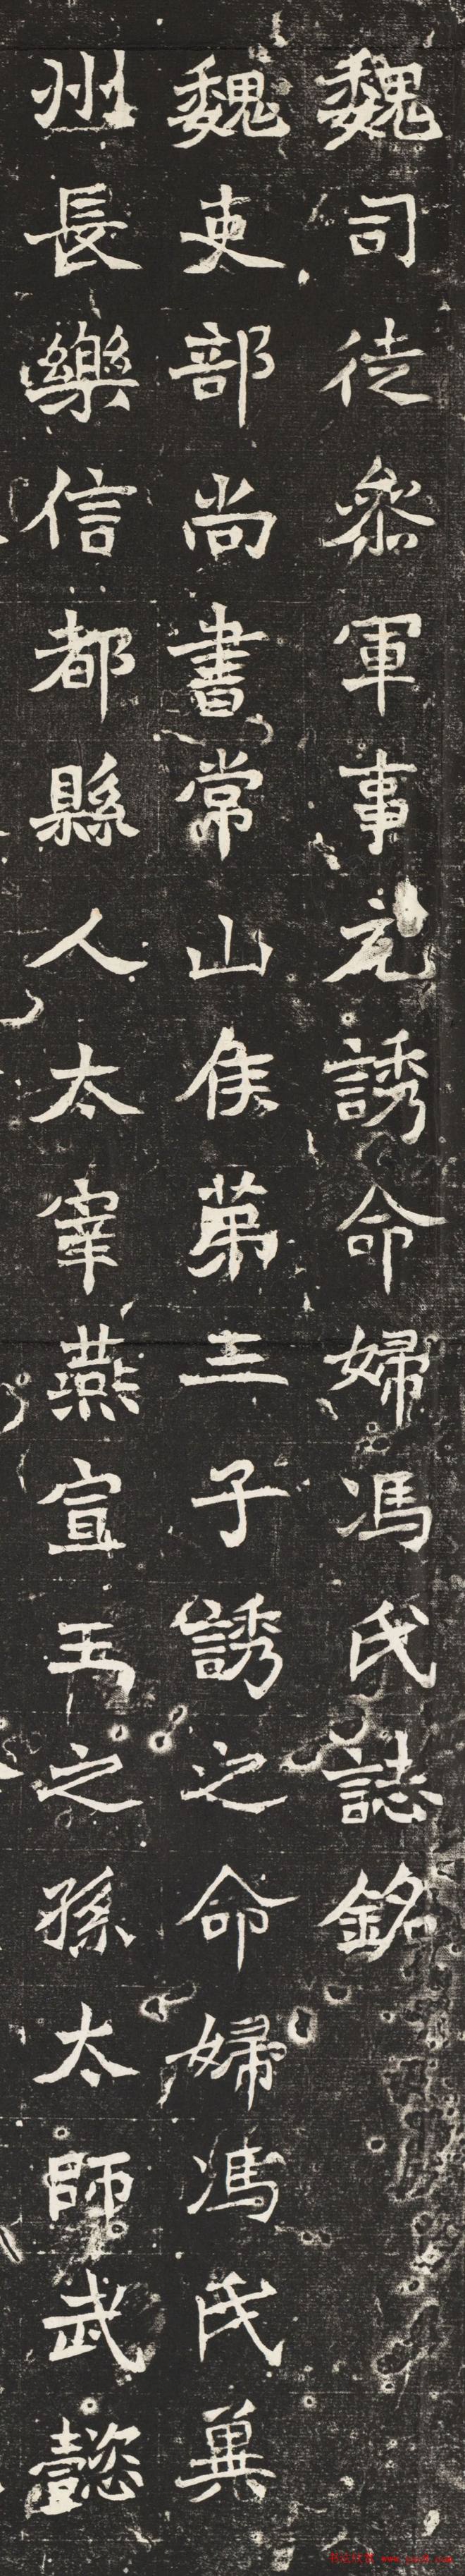 魏司徒叅軍事元誘命婦馮氏誌銘
魏吏部尚書常山侯苐三子誘之命婦馮氏兾
州長樂信都縣人太宰燕宣王之孫太師武懿